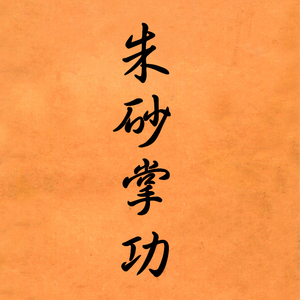 朱砂掌功